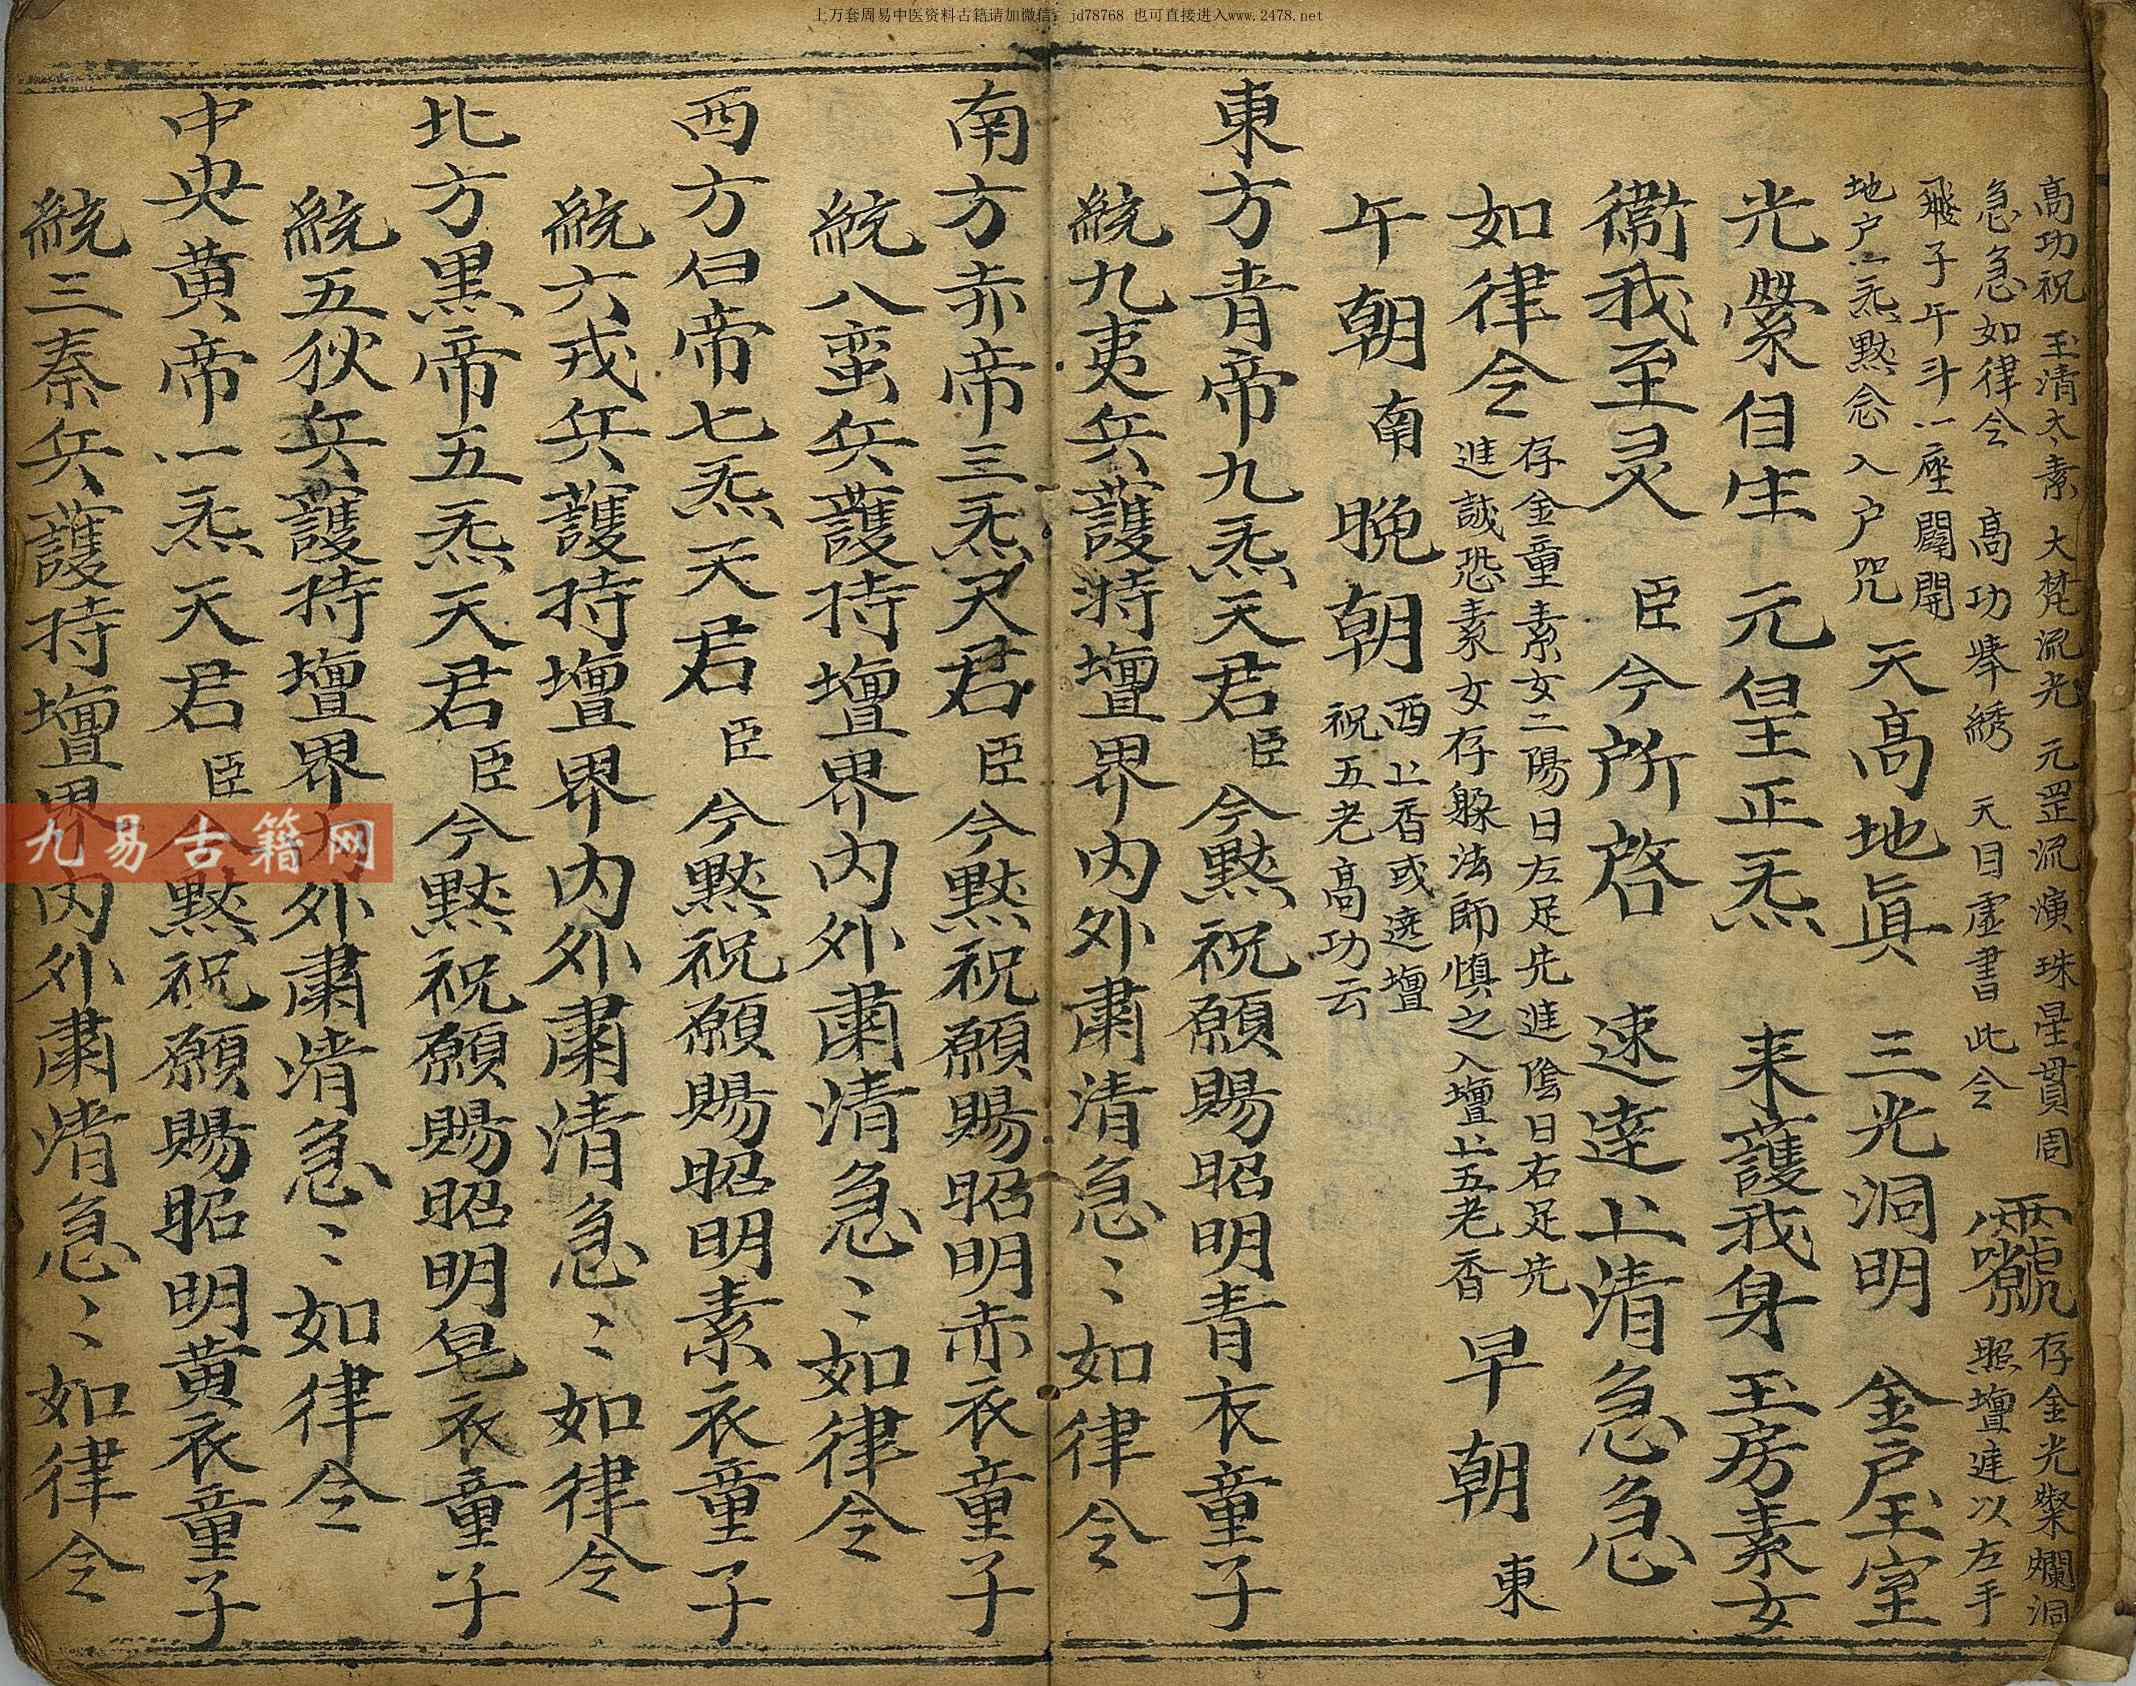 上万套周易中医资料古籍请加微信： jd78768 也可直接进入www.2478.net
高功祝 玉清太素 大梵流光 元罡流演 珠星貫周 存金光燦爛洞
急急如律令 高功捧綉 天目虛書此令 照壇進以左手
飛子午斗一座闢開
地户一炁黙念入户咒 天高地眞 三光洞明 金户玉室
光縈自生 元皇正炁 来護我身 玉房素女
衞我至灵 臣今所啓 速達上清 急急
如律令 存金童素女二陽日左足先進陰日右足先
進誠恐素女存躲法師慎之入壇上五老香 早朝 東
午朝 南 晚朝 西上香或遶壇
祝五老高功云
東方青帝九炁天君臣今黙祝願賜昭明青衣童子
統九夷兵護持壇界內外肅清急〻如律令
南方赤帝三炁天君臣今黙祝願賜昭明赤衣童子
統八蛮兵護持壇界內外肅清急〻如律令
西方白帝七炁天君臣今黙祝願賜昭明素衣童子
統六戎兵護持壇界內外肅清急〻如律令
北方黒帝五炁天君臣今黙祝願賜昭明皂衣童子
統五狄兵護持壇界內外肅清急〻如律令
中央黄帝一炁天君臣今黙祝願賜昭明黄衣童子
統三秦兵護持壇界內外肅清急〻如律令
九易古籍网